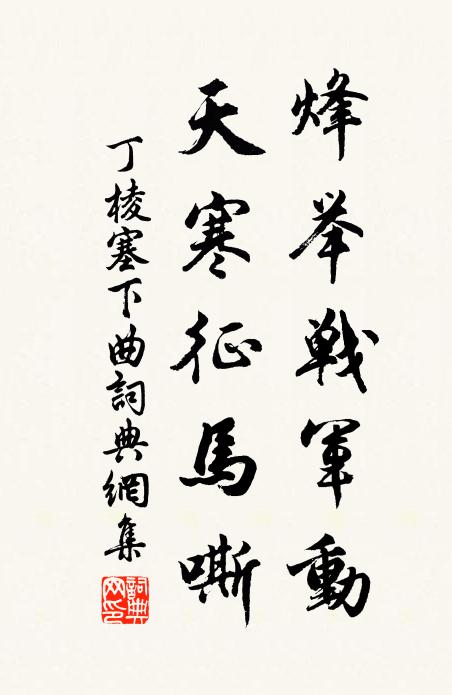 烽举戦军動
天寒征馬嘶
丁棱塞下曲詞典網集
詞典网印